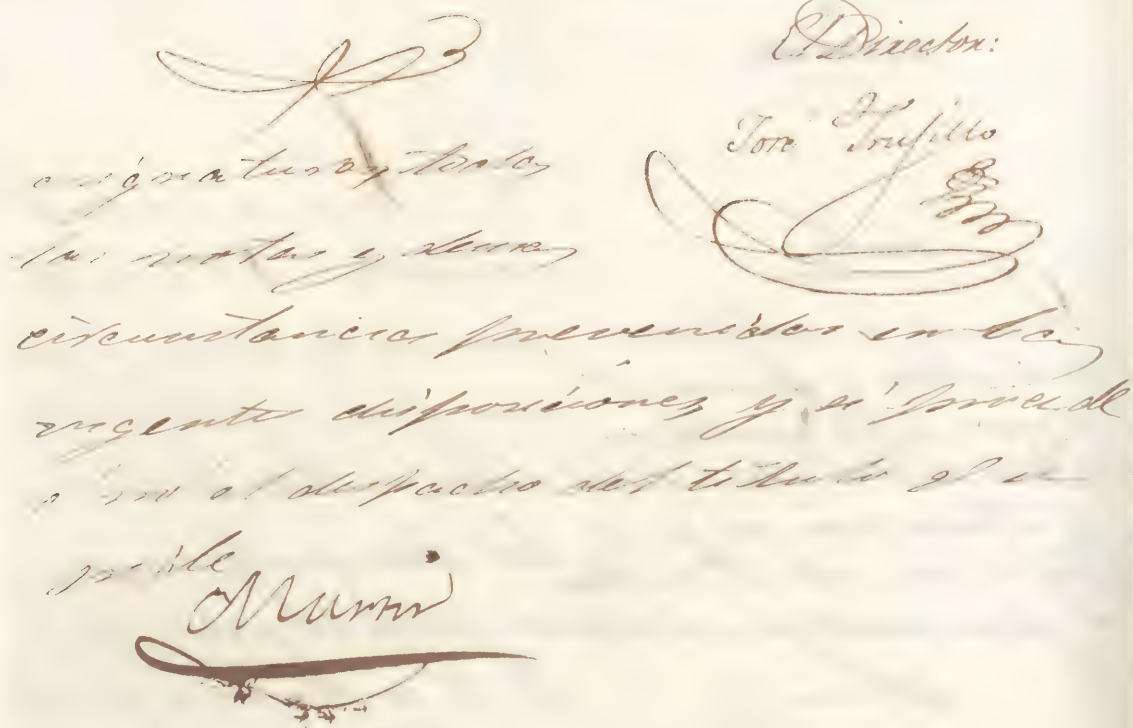 El Director:
José Trujillo
asignaturas y todas
las notas y demas
circunstancias prevenidas en las
vigentes disposiciones y si procede
ó no el despacho del titulo